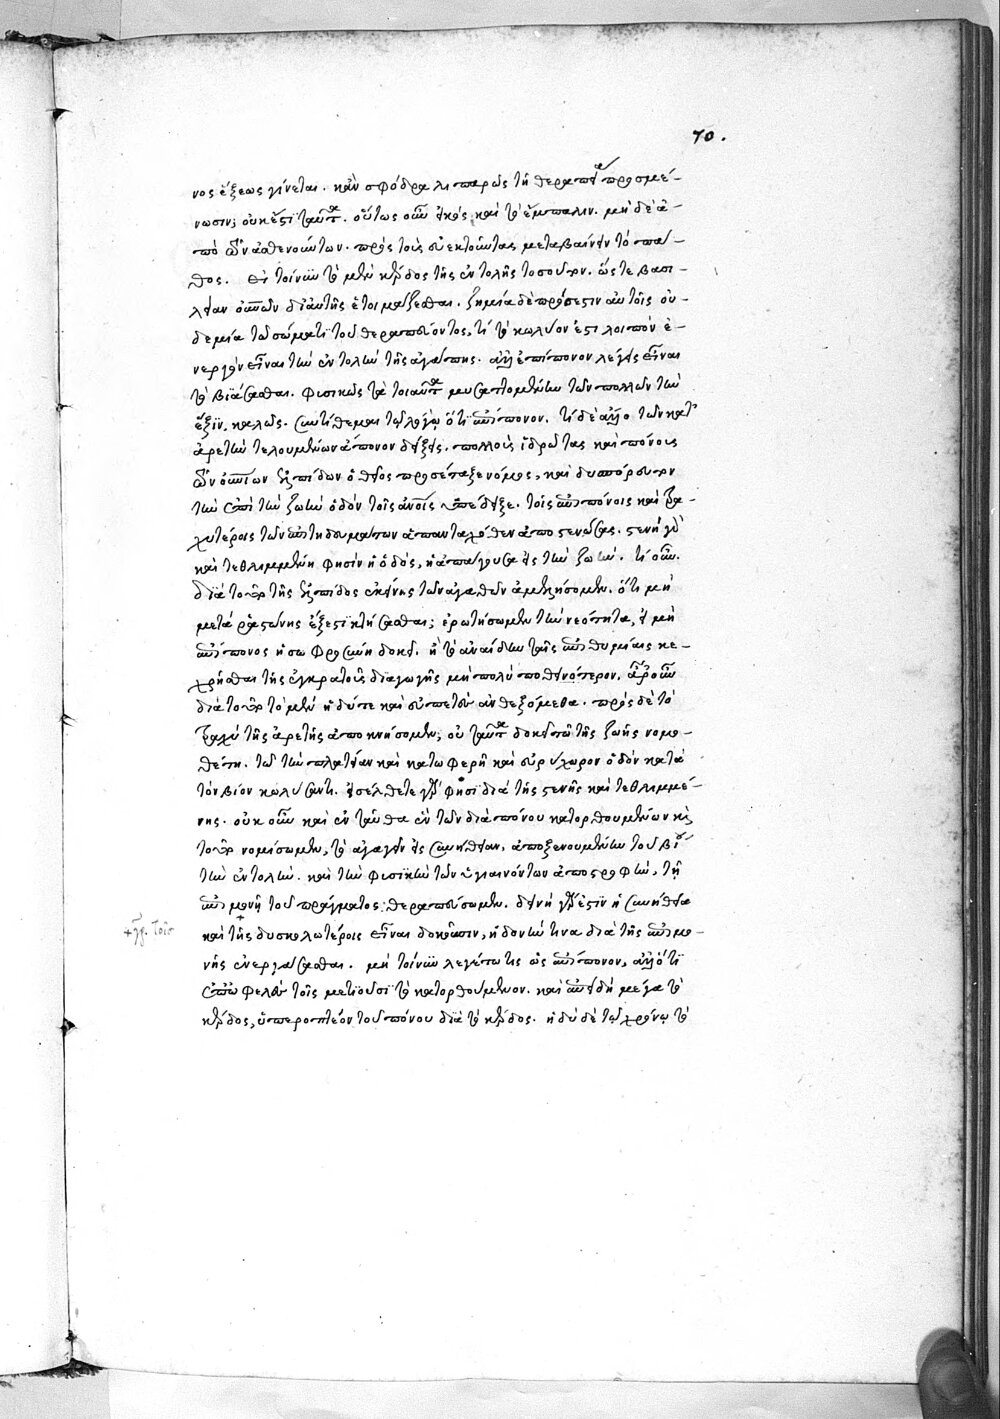 70.
νος ἕξεως γίνεται. κἂν σφόδρα λιπαρῶς τῇ θεραπείᾳ προσμέ-
νωσιν; οὐκ ἔστι ταῦτα. οὕτως οὖν εἰκὸς καὶ τὸ ἔμπαλιν. μηδὲ ἀ-
πὸ τῶν ἀσθενούντων. πρὸς τοὺς εὐεκτοῦντας μεταβαίνειν τὸ πά-
θος. εἰ τοίνυν τὸ μὲν κέρδος τῆς ἐντολῆς τοσοῦτον. ὥστε βασι-
λείαν οὐρανῶν δι' αὐτῆς ἑτοιμάζεσθαι. ζημία δὲ πρόσεστιν αὐτοῖς οὐ-
δεμία τῷ σώματι τοῦ θεραπεύοντος, τί τὸ κωλῦον ἐστὶ λοιπὸν ἐ-
νεργὸν εἶναι τὴν ἐντολὴν τῆς ἀγάπης. ἀλλ' ἐπίπονον λέγεις εἶναι
τὸ βιάσασθαι. φυσικῶς τὰ τοιαῦτα μυσαττομένην τῶν πολλῶν τὴν
ἕξιν. καλῶς. συντίθεμαι τῷ λόγῳ ὅτι ἐπίπονον. τί δὲ ἄλλο τῶν κατ'
ἀρετὴν τελουμένων ἄπονον δείξεις. πολλοὺς ἱδρῶτας καὶ πόνους
τῶν οὐρανίων ἐλπίδων ὁ θεῖος προσέταξε νόμος, καὶ δυσπόρευτον
τὴν ἐπὶ τὴν ζωὴν ὁδὸν τοῖς ἀνοις ὑπέδειξε. τοῖς ἐπιπόνοις καὶ τρα-
χυτέροις τῶν ἐπιτηδευμάτων ἁπανταχόθεν ἀποστενώσας. στενὴ γὰρ
καὶ τεθλιμμένη φησὶν ἡ ὁδός, ἡ ἀπάγουσα εἰς τὴν ζωήν. τί οὖν.
διὰ τοῦτο τῆς ἐλπίδος ἐκείνης τῶν ἀγαθῶν ἀμελήσομεν. ὅτι μὴ
μετὰ ῥαστώνης ἔξεστι κτήσασθαι; ἐρωτήσωμεν τὴν νεότητα, εἰ μὴ
ἐπίπονος ἡ σωφροσύνη δοκεῖ. ἢ τὸ ἀναίδην ταῖς ἐπιθυμίαις κε-
χρῆσθαι τῆς ἐγκρατοῦς διαγωγῆς μὴ πολὺ ποθεινότερον. ἆρ' οὖν
διὰ τοῦτο τὸ μὲν ἡδύ τε καὶ εὐπετὲς ἀνθεξόμεθα. πρὸς δὲ τὸ
τραχὺ τῆς ἀρετῆς ἀποκνήσομεν; οὐ ταῦτα δοκεῖ τῷ τῆς ζωῆς νομο-
θέτῃ. τῷ τὴν πλατεῖαν καὶ κατωφερῆ καὶ εὐρύχωρον ὁδὸν κατὰ
τὸν βίον κωλύσαντι. εἰσέλθετε γάρ φησι διὰ τῆς στενῆς καὶ τεθλιμμέ-
νης. οὐκ οὖν καὶ ἐνταῦθα ἓν τῶν διὰ πόνου κατορθουμένων καὶ
τοῦτο νομίσωμεν, τὸ ἀγαγεῖν εἰς συνήθειαν. ἀποξενουμένην τοῦ βίου
τὴν ἐντολήν. καὶ τὴν φυσικὴν τῶν ὑγιαινόντων ἀποστροφήν, τῇ
ἐπιμονῇ τοῦ πράγματος θεραπεύσωμεν. δεινὴ γάρ ἐστιν ἡ συνήθεια
+ γρ. τοῖς
καὶ τῆς δυσκολωτέροις εἶναι δοκοῦσιν, ἡδονήν τινα διὰ τῆς ἐπιμο-
νῆς ἐνεργάσασθαι. μὴ τοίνυν λεγέτω τις ὡς ἐπίπονον, ἀλλ' ὅτι
ἐπωφελὲς τοῖς μετιοῦσι τὸ κατορθούμενον. καὶ ἐπειδὴ μέγα τὸ
κέρδος, ὑπεροπτέον τοῦ πόνου διὰ τὸ κέρδος. ἡδὺ δὲ τῷ χρόνῳ τὸ